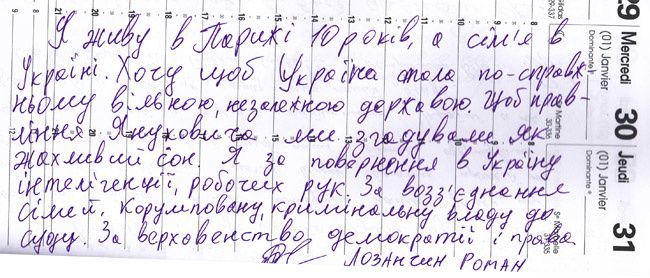 Я живу в Парижі 10 років, а сім'я в
Україні. Хочу щоб Україна стала по-справж
ньому вільною, незалежною державою. Щоб прав-
ління Януковича ми згадували як
жахливий сон. Я за повернення в Україну
інтелігенції, робочих рук. За возз'єднання
сімей. Корумповану, кримінальну владу до
суду. За верховенство демократії і права
Лозанчин Роман
29
Mercredi
(01) Janvier
30
Jeudi
(01) Janvier
31